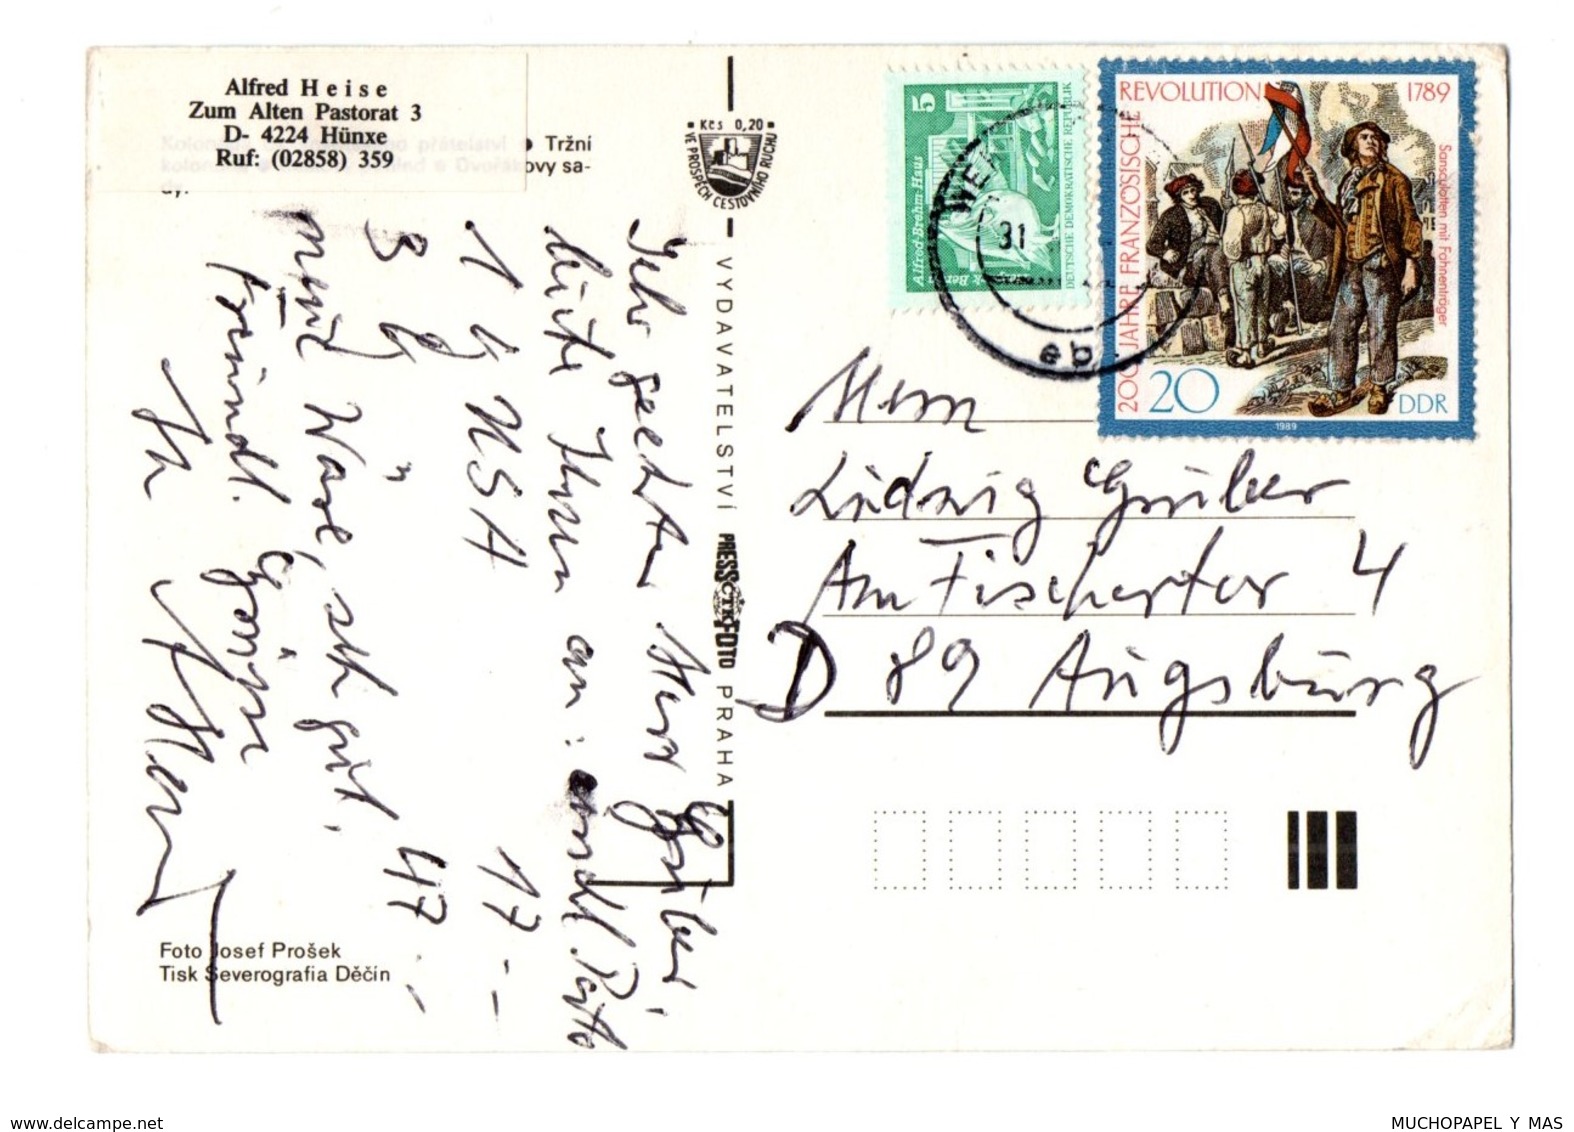 Alfred Heise
Zum Alten Pastorat 3
D- 4224 Hünxe
Ruf: (02858) 359
přátelství ● Tržní
kolon a Dvořákovy sa-
dy.
Kčs 0,20
VE PROSPĚCH CESTOVNÍHO RUCHU
VYDAVATELSTVÍ PRESSFOTO PRAHA
ČTK
5
Alfred-Brehm-Haus
DEUTSCHE DEMOKRATISCHE REPUBLIK
31
200 JAHRE FRANZÖSISCHE
REVOLUTION 1789
Sansculotten mit Fahnenträger
20
DDR
1989
Sehr geehrter Herr Gruber,
biete Ihnen an: Porto
1 USA 17.-
3 47.-
Ware, sehr gut.
Freundl. Grüsse
Ihr
Herrn
Ludwig Gruber
Am Fischertor 4
D 89 Augsburg
Foto Josef Prošek
Tisk Severografia Děčín
www.delcampe.net
MUCHOPAPEL Y MAS